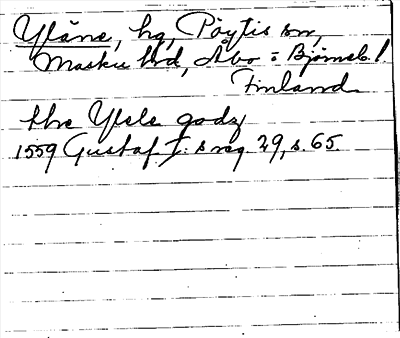 Yläne, hg, Pöytis sn,
Masku hd, Åbo = Björneb. l
Finland
the Ylele godz
1559 Gustaf I: s reg 29, s. 65.